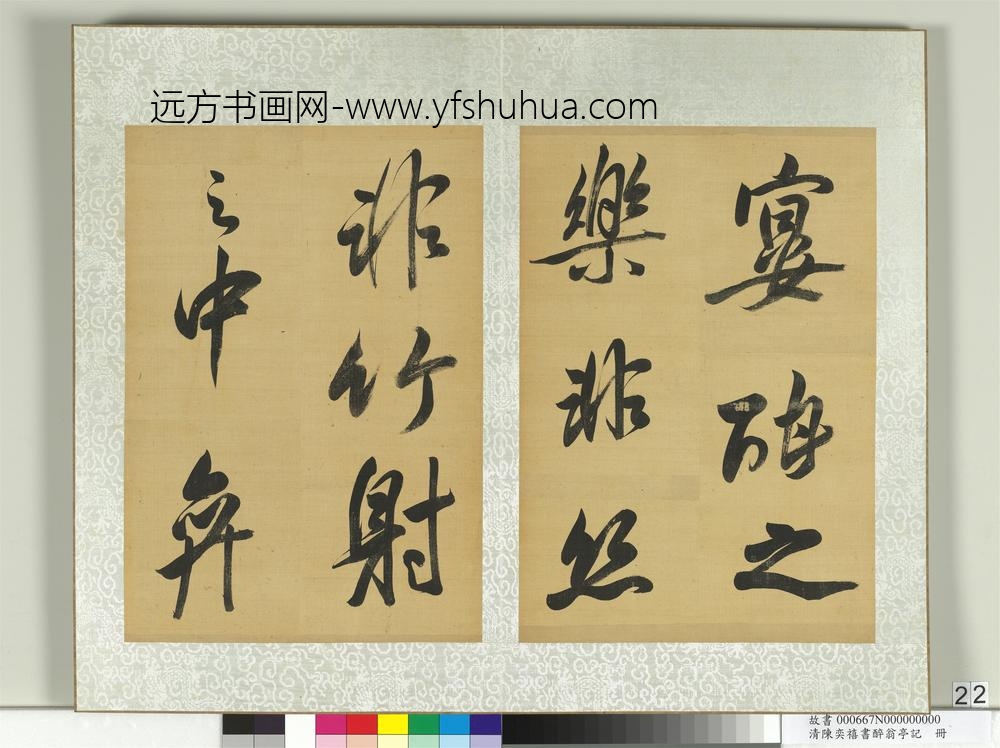 远方书画网-www.yfshuhua.com
宴酣之
樂非絲
非竹射
之中弈
22
故書 000667N000000000
清陳奕禧書醉翁亭記 冊